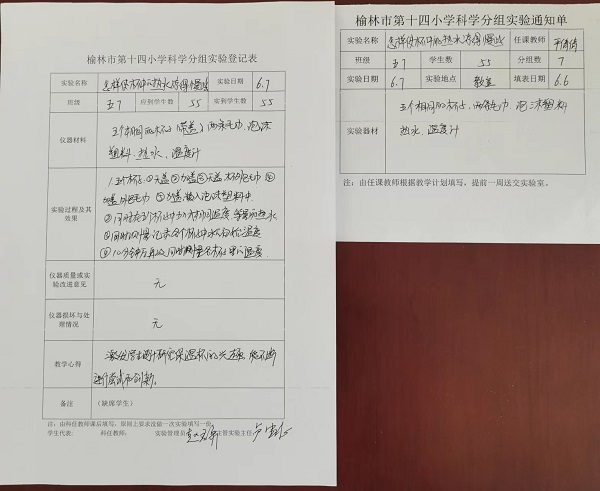 榆林市第十四小学科学分组实验登记表
实验名称 怎样使杯中的热水凉得慢些 实验日期 6.7
班级 五7 应到学生数 55 实到学生数 55
仪器材料
五个相同的水杯（带盖）、两条毛巾、泡沫
塑料、热水、温度计
实验过程及其
效果
1.五个杯子：①无盖②加盖③无盖 杯外包毛巾④
加盖 外包毛巾⑤加盖 嵌入泡沫塑料中
②同时在5个杯中加入相同温度、等量的热水
③同时测量记录各个杯中水的初始温度
④10分钟后再次同时测量各杯里的温度
仪器质量或实
验改进意见
无
仪器损坏与处
理情况
无
教学心得
激发学生设计研究保温杯的兴趣，能不断
进行尝试和创新。
备注 （缺席学生）
注：由科任教师课后填写，原则上要求没做一次实验填写一份。
学生代表： 科任教师： 实验管理员： 主管实验主任：
榆林市第十四小学科学分组实验通知单
实验名称 怎样使杯中的热水凉得慢些 任课教师
班级 五7 学生数 55 分组数 7
实验日期 6.7 实验地点 教室 填表日期 6.6
实验器材
五个相同的水杯、两条毛巾、泡沫塑料
热水、温度计
注：由任课教师根据教学计划填写，提前一周送交实验室。